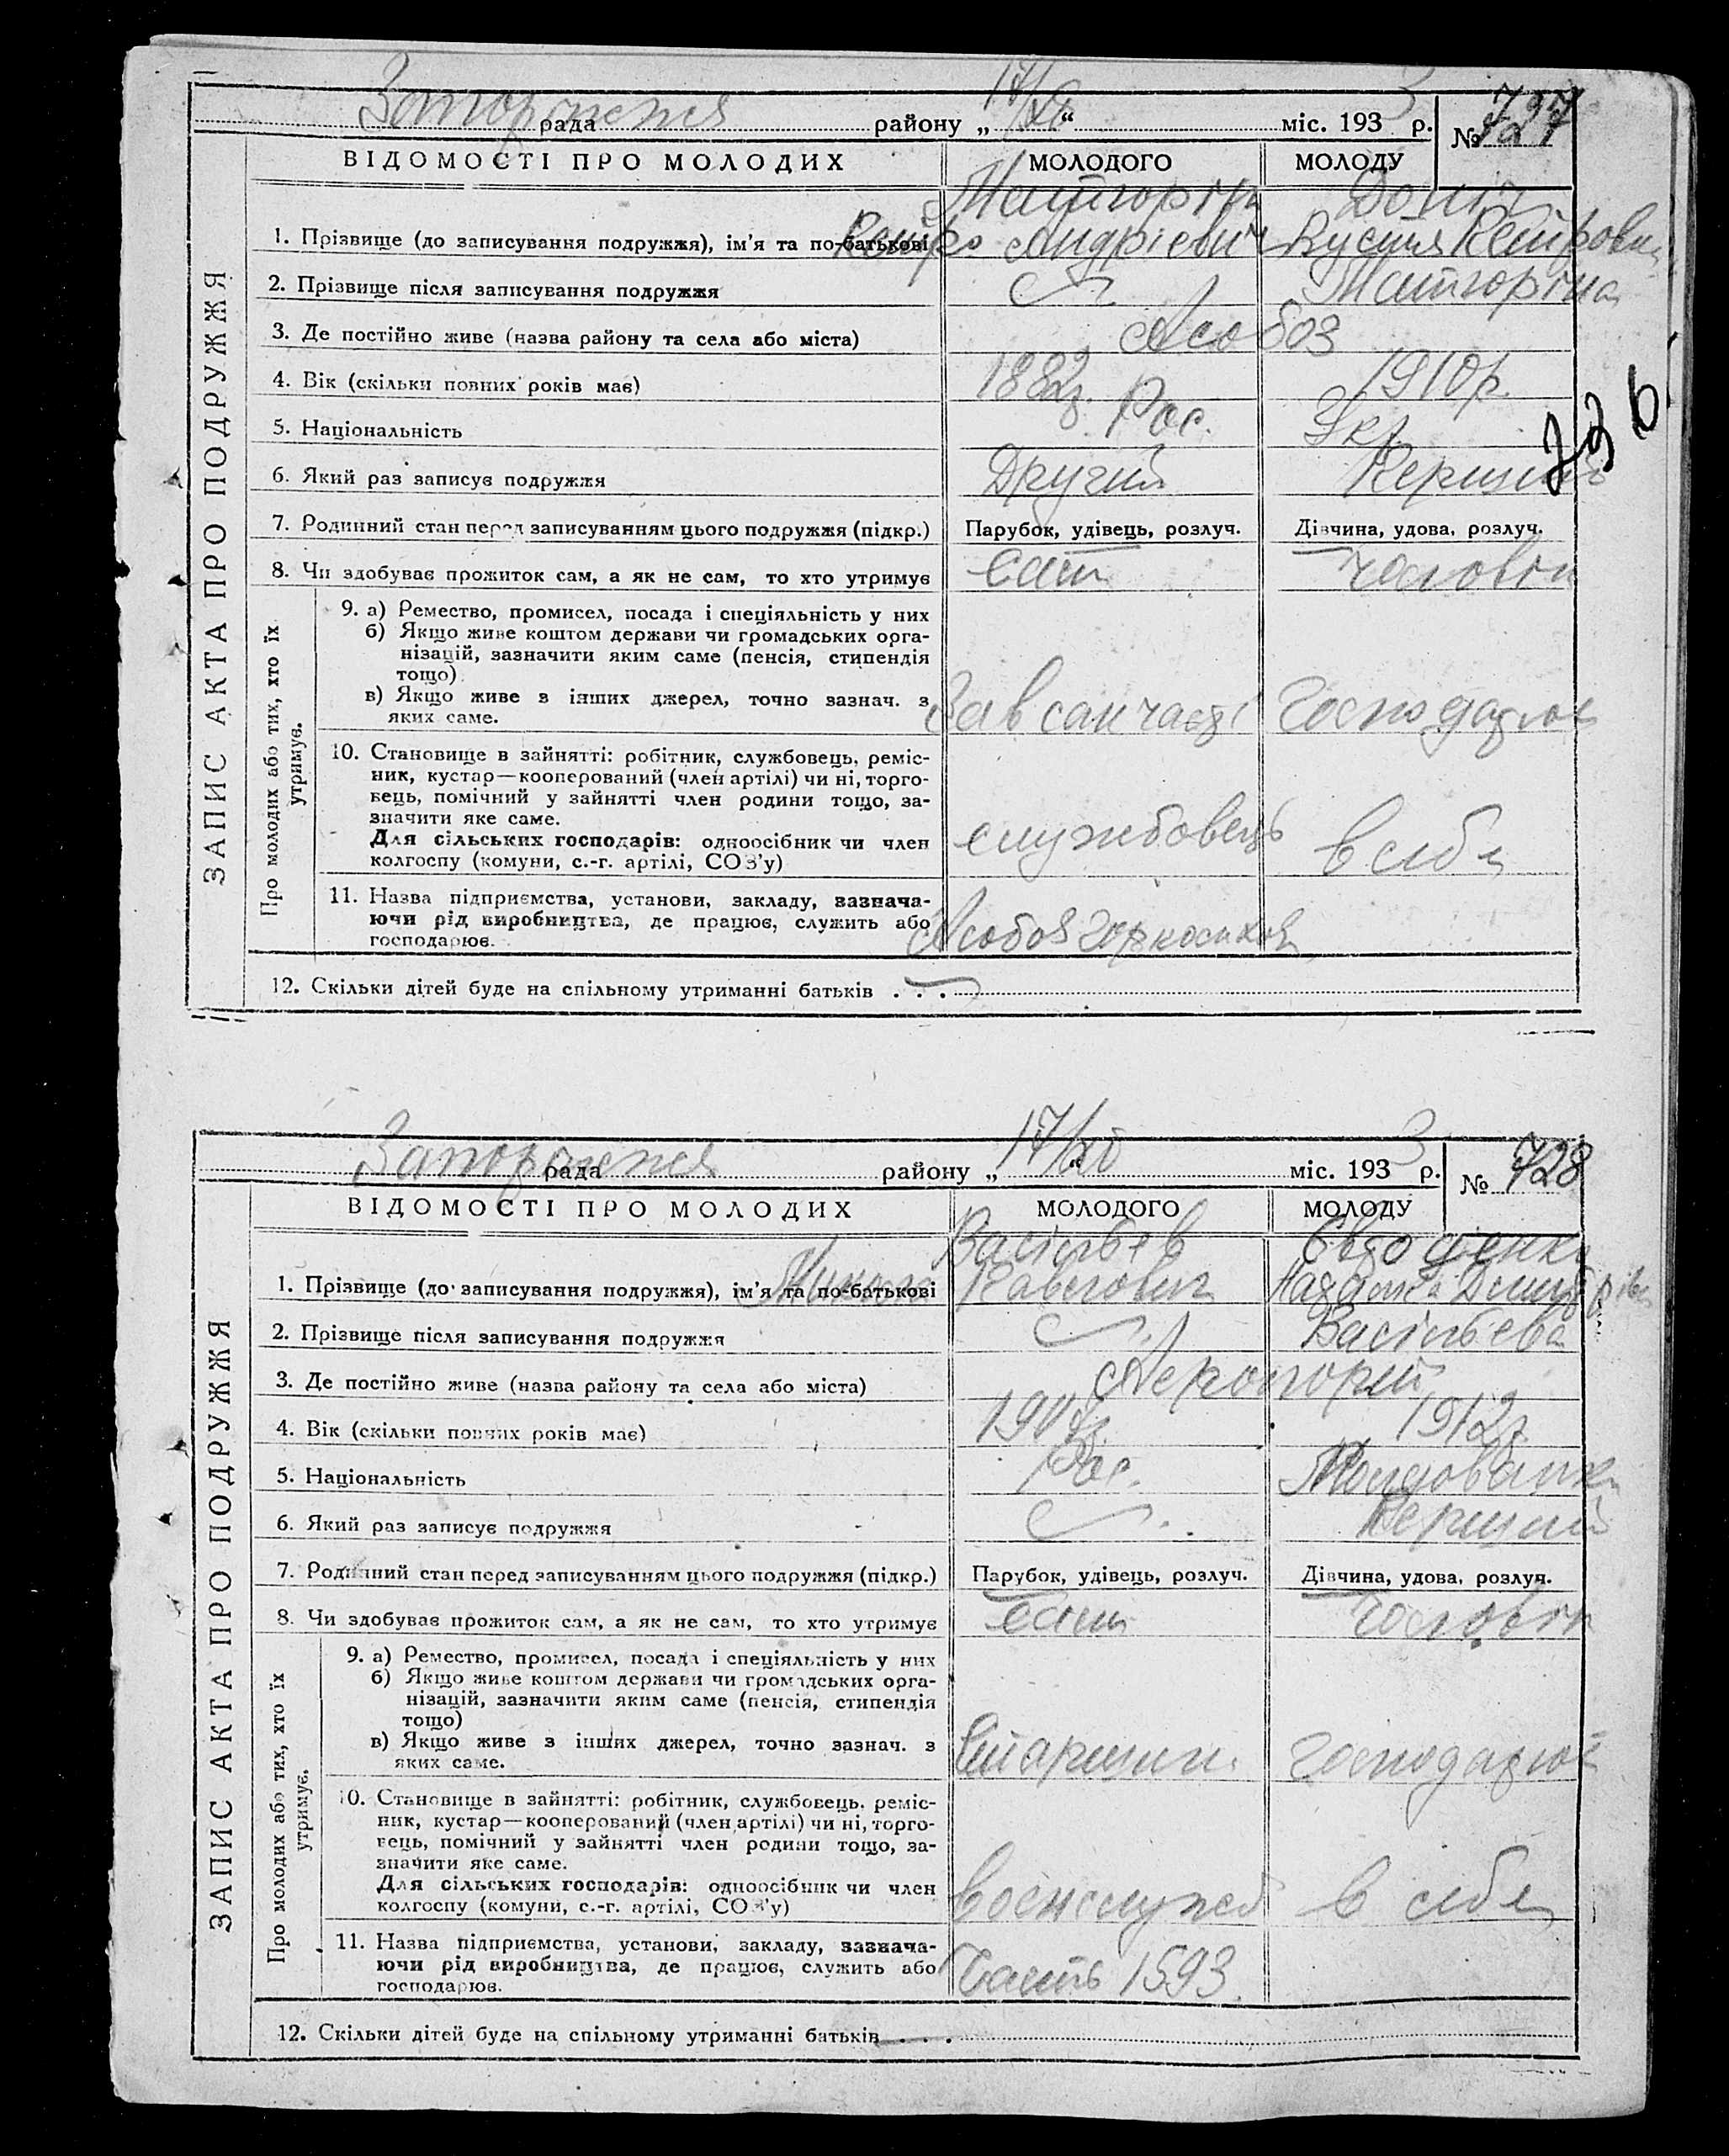 Запоріжжя рада району „ 17/XI “ міс. 1933 р. № 727
ВІДОМОСТІ ПРО МОЛОДИХ МОЛОДОГО МОЛОДУ
ЗАПИС АКТА ПРО ПОДРУЖЖЯ
1. Прізвище (до записування подружжя), ім'я та по-батькові Петро Андрієвич
2. Прізвище після записування подружжя
3. Де постійно живе (назва району та села або міста)
4. Вік (скільки повних років має) 1882р. 1910р.
5. Національність Рос. Укр.
6. Який раз записує подружжя Другий Перший
7. Родинний стан перед записуванням цього подружжя (підкр.) Парубок, удівець, розлуч. Дівчина, удова, розлуч.
8. Чи здобуває прожиток сам, а як не сам, то хто утримує Сам чоловік
Про молодих або тих, хто їх утримує.
9. а) Ремество, промисел, посада і спеціяльність у них
б) Якщо живе коштом держави чи громадських орга-
нізацій, зазначити яким саме (пенсія, стипендія
тощо)
в) Якщо живе з інших джерел, точно зазнач. з
яких саме. Зав санчасті Господарює
10. Становище в зайнятті: робітник, службовець, реміс-
ник, кустар—кооперований (член артілі) чи ні, торго-
вець, помічний у зайнятті член родини тощо, за-
значити яке саме.
Для сільських господарів: одноосібник чи член
колгоспу (комуни, с.-г. артілі, СОЗ'у) службовець в себе
11. Назва підприємства, установи, закладу, зазнача-
ючи рід виробництва, де працює, служить або
господарює.
12. Скільки дітей буде на спільному утриманні батьків . . .
Запоріжжя рада району „ 17/XI “ міс. 1933 р. № 728
ВІДОМОСТІ ПРО МОЛОДИХ МОЛОДОГО МОЛОДУ
ЗАПИС АКТА ПРО ПОДРУЖЖЯ
Васільєв Євдощенко
1. Прізвище (до записування подружжя), ім'я та по-батькові Микола Павлович Наталка Дмитрівна
2. Прізвище після записування подружжя Васільєва
3. Де постійно живе (назва району та села або міста)
4. Вік (скільки повних років має) 1907р. 1912р.
5. Національність Рос. Молдованка
6. Який раз записує подружжя Перший
7. Родинний стан перед записуванням цього подружжя (підкр.) Парубок, удівець, розлуч. Дівчина, удова, розлуч.
8. Чи здобуває прожиток сам, а як не сам, то хто утримує Сам чоловік
Про молодих або тих, хто їх утримує.
9. а) Ремество, промисел, посада і спеціяльність у них
б) Якщо живе коштом держави чи громадських орга-
нізацій, зазначити яким саме (пенсія, стипендія
тощо)
в) Якщо живе з інших джерел, точно зазнач. з
яких саме. Старшин. господарює
10. Становище в зайнятті: робітник, службовець, реміс-
ник, кустар—кооперований (член артілі) чи ні, торго-
вець, помічний у зайнятті член родини тощо, за-
значити яке саме.
Для сільських господарів: одноосібник чи член
колгоспу (комуни, с.-г. артілі, СОЗ'у) военслужб в себе
11. Назва підприємства, установи, закладу, зазнача-
ючи рід виробництва, де працює, служить або
господарює. Часть 1593.
12. Скільки дітей буде на спільному утриманні батьків . . .